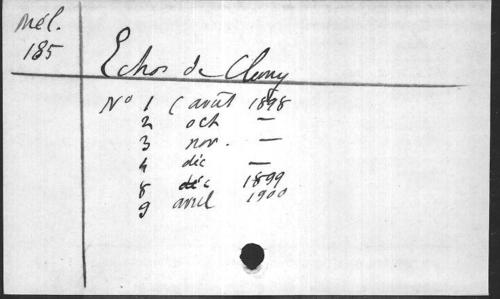 Mél.
185
Echos de Cluny
N° 1 (août 1898
2 oct —
3 nov. —
4 déc —
8 déc 1899
9 avril 1900